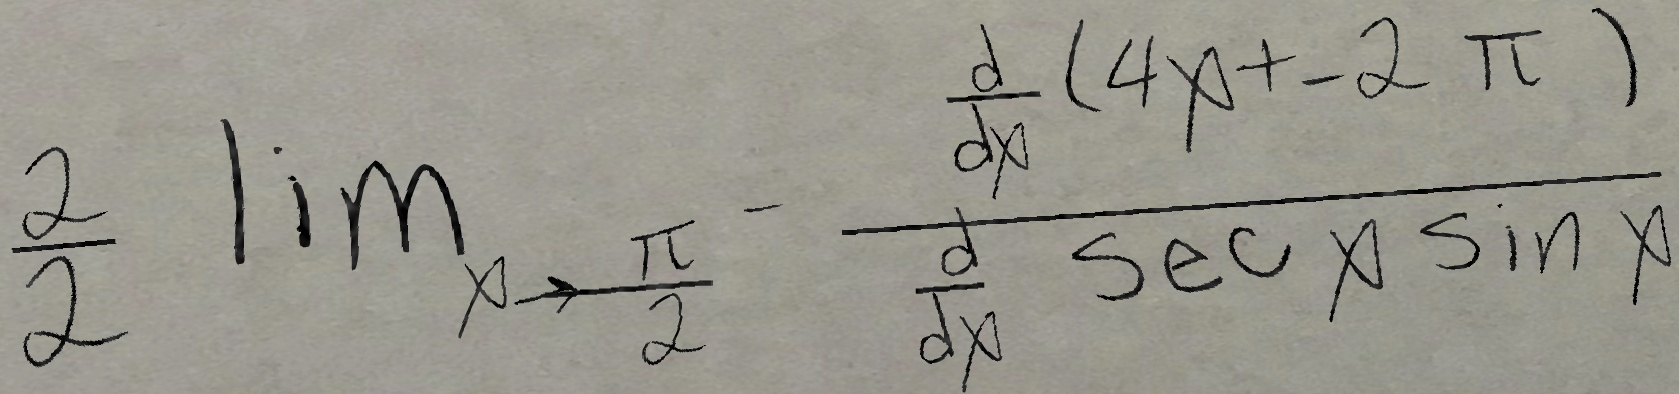 \frac{2}{2} \lim_{x \to \frac{\pi}{2}^-} \frac{\frac{d}{dx}(4x+-2\pi)}{\frac{d}{dx} \sec x \sin x}